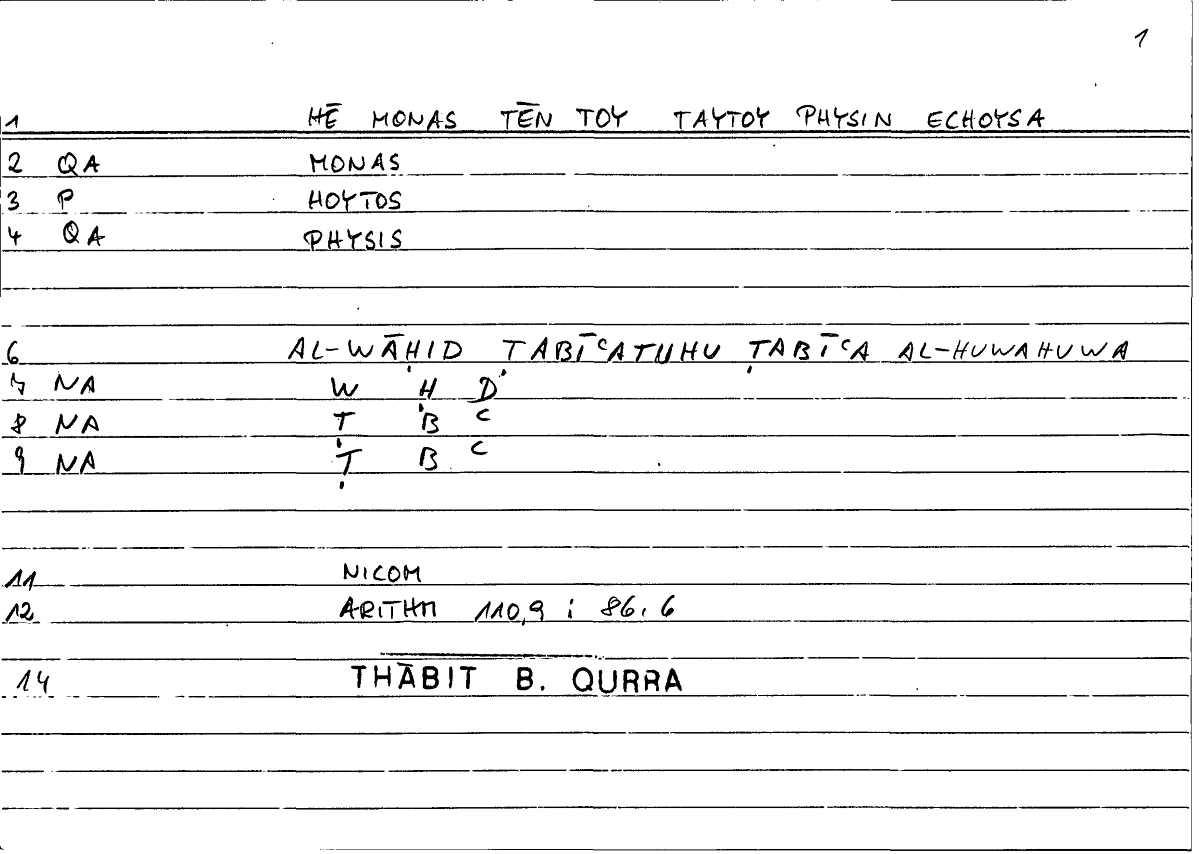 1
1 HĒ MONAS TĒN TOY TAYTOY PHYSIN ECHOYSA
2 QA MONAS
3 P HOYTOS
4 QA PHYSIS
6 AL-WĀḤID ṬABĪʿATUHU ṬABĪʿA AL-HUWAHUWA
7 NA W Ḥ D
8 NA Ṭ B ʿ
9 NA Ṭ B ʿ
11 NICOM
12 ARITHM 110,9 ; 86,6
14 THĀBIT B. QURRA